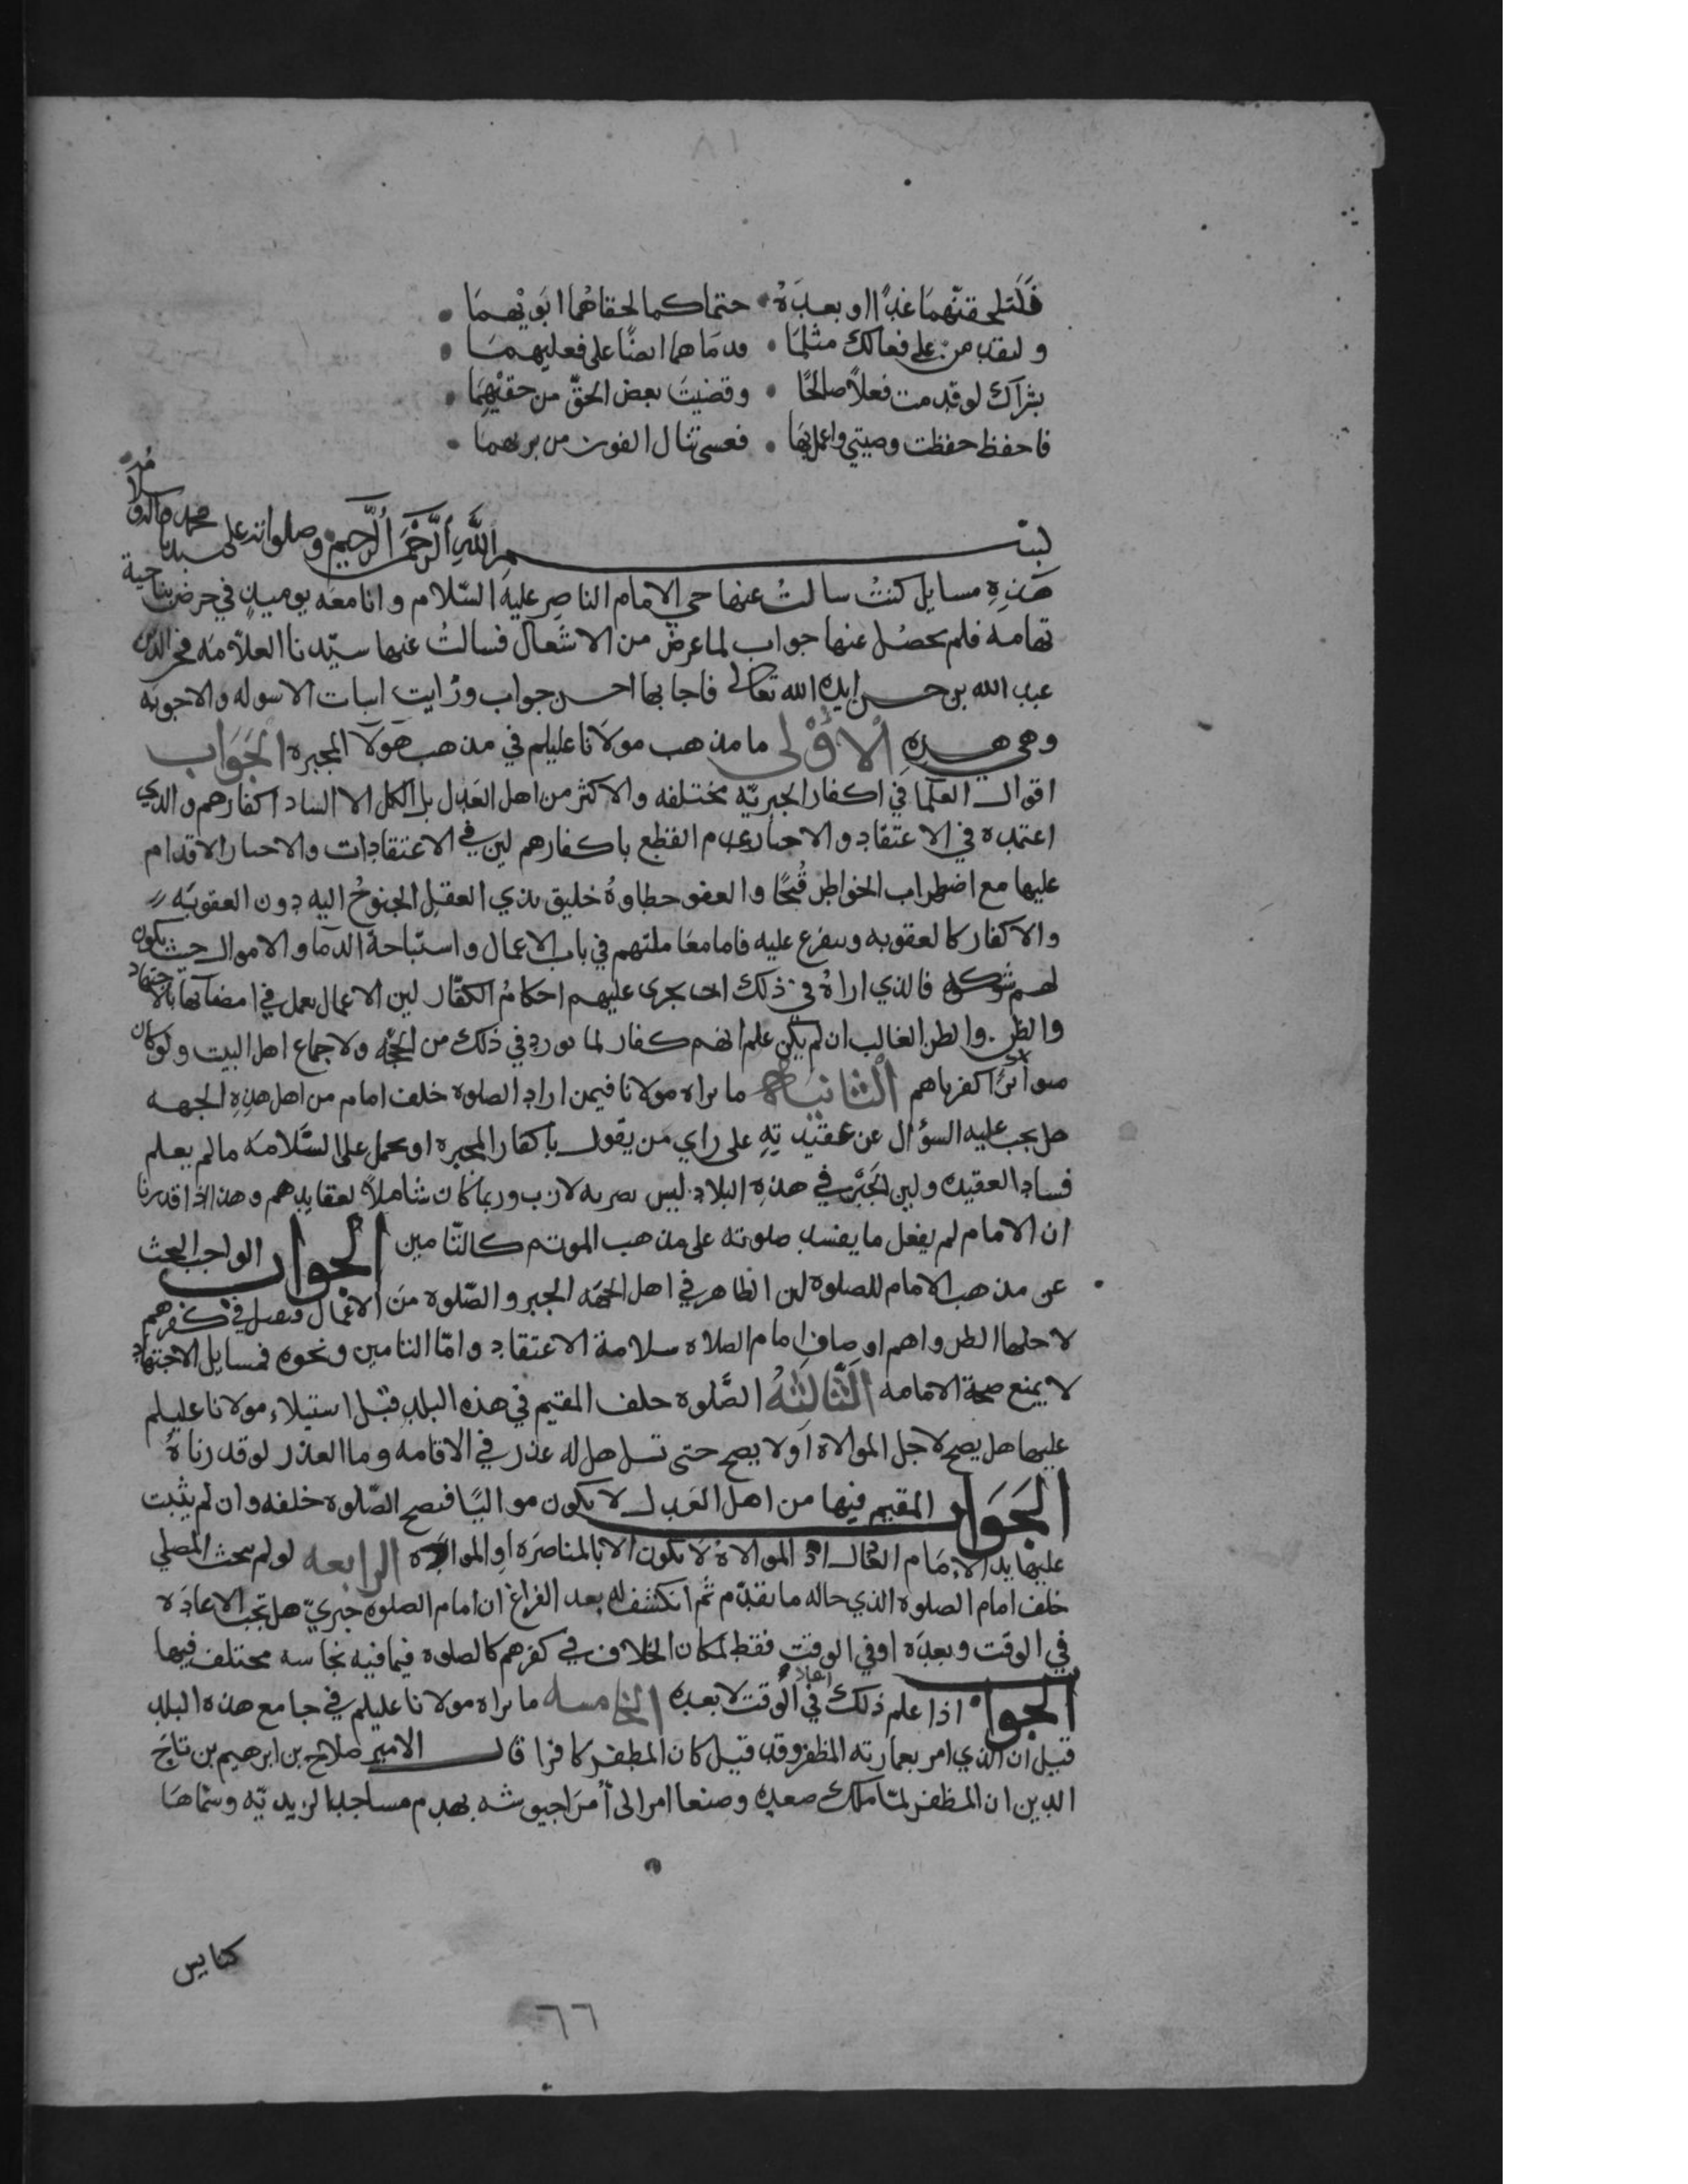 ٨١
فَلَتلحقنّهما غدًا او بعدَهُ • حتما كما لحقا هُما ابَويْهمَا •
ولتقدمن على فعالك مثلمَا • قدمَا هما ايضًا على فعليهمَا •
بشراك لو قدمت فعلاً صالحًا • وقضيتَ بعض الحقّ من حقّيْهِمَا •
فاحفظ حفظت وصيتي واعمل بهَا • فعسى تنال الفوز من بريهما •
بسم اللهِ الرَّحْمَنِ الرَّحِيمِ وصلواته على سيدنا محمد واله وسلامُه
هَذِهِ مسايل كنتُ سالتُ عنها حي الامام الناصر عليه السّلام وانا معَه يوميذٍ في حرض بناحية
تهامه فلم يحصُل عنها جواب لما عرض من الاشغال فسالتُ عنها سيّدنا العلاّمَه فخر الدّين
عبد الله بن حسن ايده الله تعالى فاجا بها احسن جواب ورَايت اثبات الاسوله والاجوبَه
وهي هذهِ الاُوْلى ما مذهب مولانا عليلم في مذهب هَولآ المجبره الجَوَاب
اقوال العلمَا في اكفار الجبريّه مختلفه والاكثر من اهل العَدل بل الكل الا الشاذ اكفارهم والذي
اعتمده في الاعتقاد والاخبار عدم القطع باكفارهم لين في الاعتقادات والاخبار الاقدام
عليها مع اضطراب الخواطر قُبحًا والعفو خطاوهُ خليق بذي العقل الجنوحُ اليه دون العقوبَه
والاكفار كالعقوبه ويتفرع عليه فاما معَاملتهم في باب الاعمال واستباحة الدمَا والاموال حيث تكون
لهم شوكه فالذي اراهُ في ذلك ان يجرى عليهم احكامُ الكفّار لين الاعمال يعمل في امضآئها بالاجتهاد
والظن والظن الغالب ان لم يكن علم انهم كفار لما يورد في ذلك من الحجّه ولاجماع اهل البيت ولو كان
متواترًا اكفرناهم الثانيَة ما يراه مولانا فيمن اراد الصلوه خلف امام من اهل هذِهِ الجهه
هل يجب عليه السؤال عن عقيدتِهِ على راي من يقول باكفار المجبره او يحمل على السَّلامَه ما لم يعلم
فساد العقيده ولين الجَبْر في هذهِ البلاد ليس بضربه لازب وربما كان شاملاً لعقايدهم وهذا اذا قدرنا
ان الامام لم يفعل ما يفسد صلوته على مذهب الموتم كالتّامين الجواب الواجب البحث
عن مذهب الامام للصلوه لين الظاهر في اهل الجهَه الجبر والصّلوه من الاعمَال فيعمل في كفرهم
لاجلها الظن واهم اوصاف امام الصلاه سلامة الاعتقاد وامّا التامين ونحوه فمسايل الاجتهاد
لا يمنع صحة الامامه الثَّالثهُ الصَّلوه خلف المقيم في هذه البلد قبْل استيلاء مولانا عليلم
عليها هل يصح لاجل الموالاة اَو لا يصح حتى تسل هل له عذر في الاقامه وما العذر لو قدرناهُ
الجَوَاب المقيم فيها من اهل العَدل لا يكون مواليًا فتصح الصّلوه خلفه وان لم يثبت
عليها يد الاِمَام العَال اذ الموالاةُ لا تكون الا بالمناصَره او الموازَره الرابعه لو لم يبحث المصلي
خلف امام الصلوه الذي حاله ما تقدّم ثم انكشف له بعد الفراغ ان امام الصلوه جبريّ هل تجب الاعادَه
في الوقت وبعدَه او في الوقت فقط لمكان الخلاف في كفرهم كالصلوه فيما فيه نجاسه مختلف فيها
الجواب اذا علم ذلك اعاد في الوَقت لا بعده الخامسه ما يراه مولانا عليلم في جامع هذه البلد
قيل ان الذي امر بعمارته المظفر وقد قيل كان المظفر كافرا قال الامير صلاح بن ابرهيم بن تاج
الدين ان المظفر لمّا ملك صعده وصنعا امر الى اُمرَا جيوشه بهدم مساجد الزيديّه وسمّاهَا
كنايس
٦٦